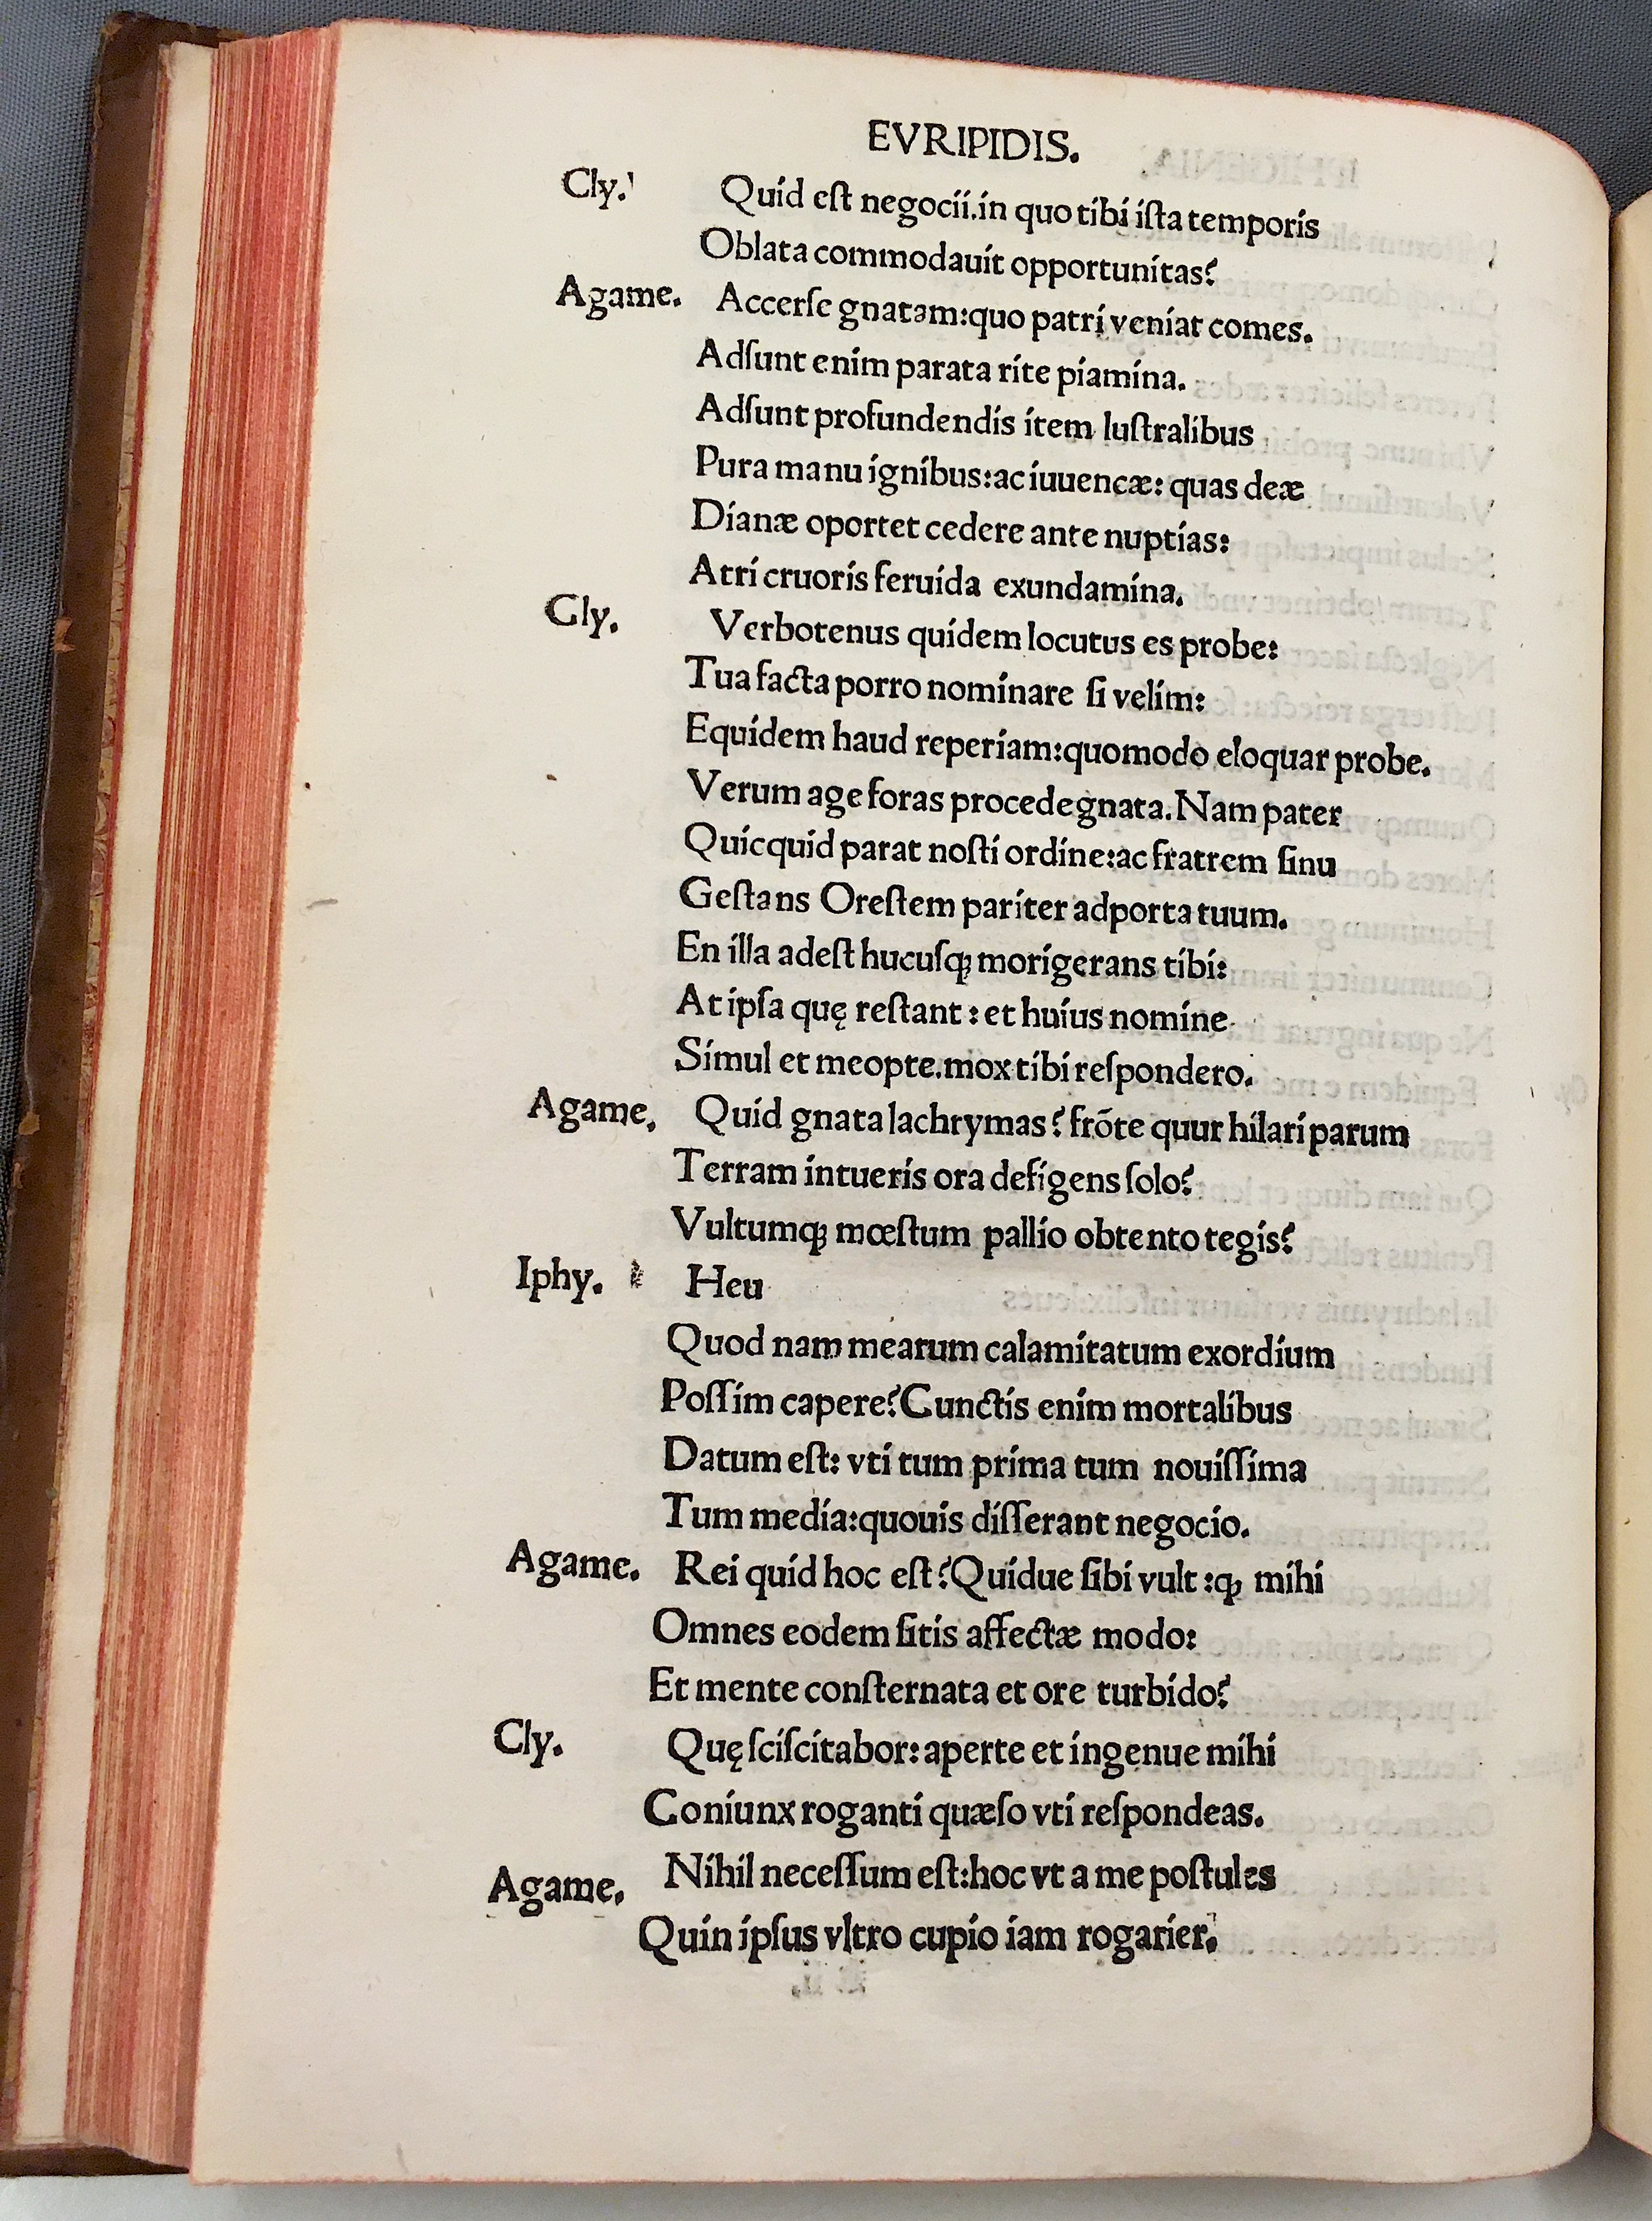 EVRIPIDIS.
Cly. Quid eſt negocii.in quo tibi iſta temporis
Oblata commodauit opportunitas?
Agame. Accerſe gnatam:quo patri veniat comes.
Adſunt enim parata rite piamina.
Adſunt profundendis item luſtralibus
Pura manu ignibus:ac iuuencæ: quas deæ
Dianæ oportet cedere ante nuptias:
Atri cruoris feruida exundamina.
Gly. Verbotenus quidem locutus es probe:
Tua facta porro nominare ſi velim:
Equidem haud reperiam:quomodo eloquar probe.
Verum age foras procede gnata.Nam pater
Quicquid parat noſti ordine:ac fratrem ſinu
Geſtans Oreſtem pariter adporta tuum.
En illa adeſt hucuſqꝫ morigerans tibi:
At ipſa quę reſtant : et huius nomine
Simul et meopte.mox tibi reſpondero.
Agame. Quid gnata lachrymas? frōte quur hilari parum
Terram intueris ora defigens ſolo?
Vultumqꝫ mœſtum pallio obtento tegis?
Iphy. Heu
Quod nam mearum calamitatum exordium
Poſſim capere?Cunctis enim mortalibus
Datum eſt: vti tum prima tum nouiſſima
Tum media:quouis diſſerant negocio.
Agame. Rei quid hoc eſt?Quidue ſibi vult :qꝫ mihi
Omnes eodem ſitis affectæ modo:
Et mente conſternata et ore turbido?
Cly. Quę ſciſcitabor: aperte et ingenue mihi
Coniunx roganti quæſo vti reſpondeas.
Agame. Nihil neceſſum eſt:hoc vt a me poſtules
Quin ipſus vltro cupio iam rogarier.